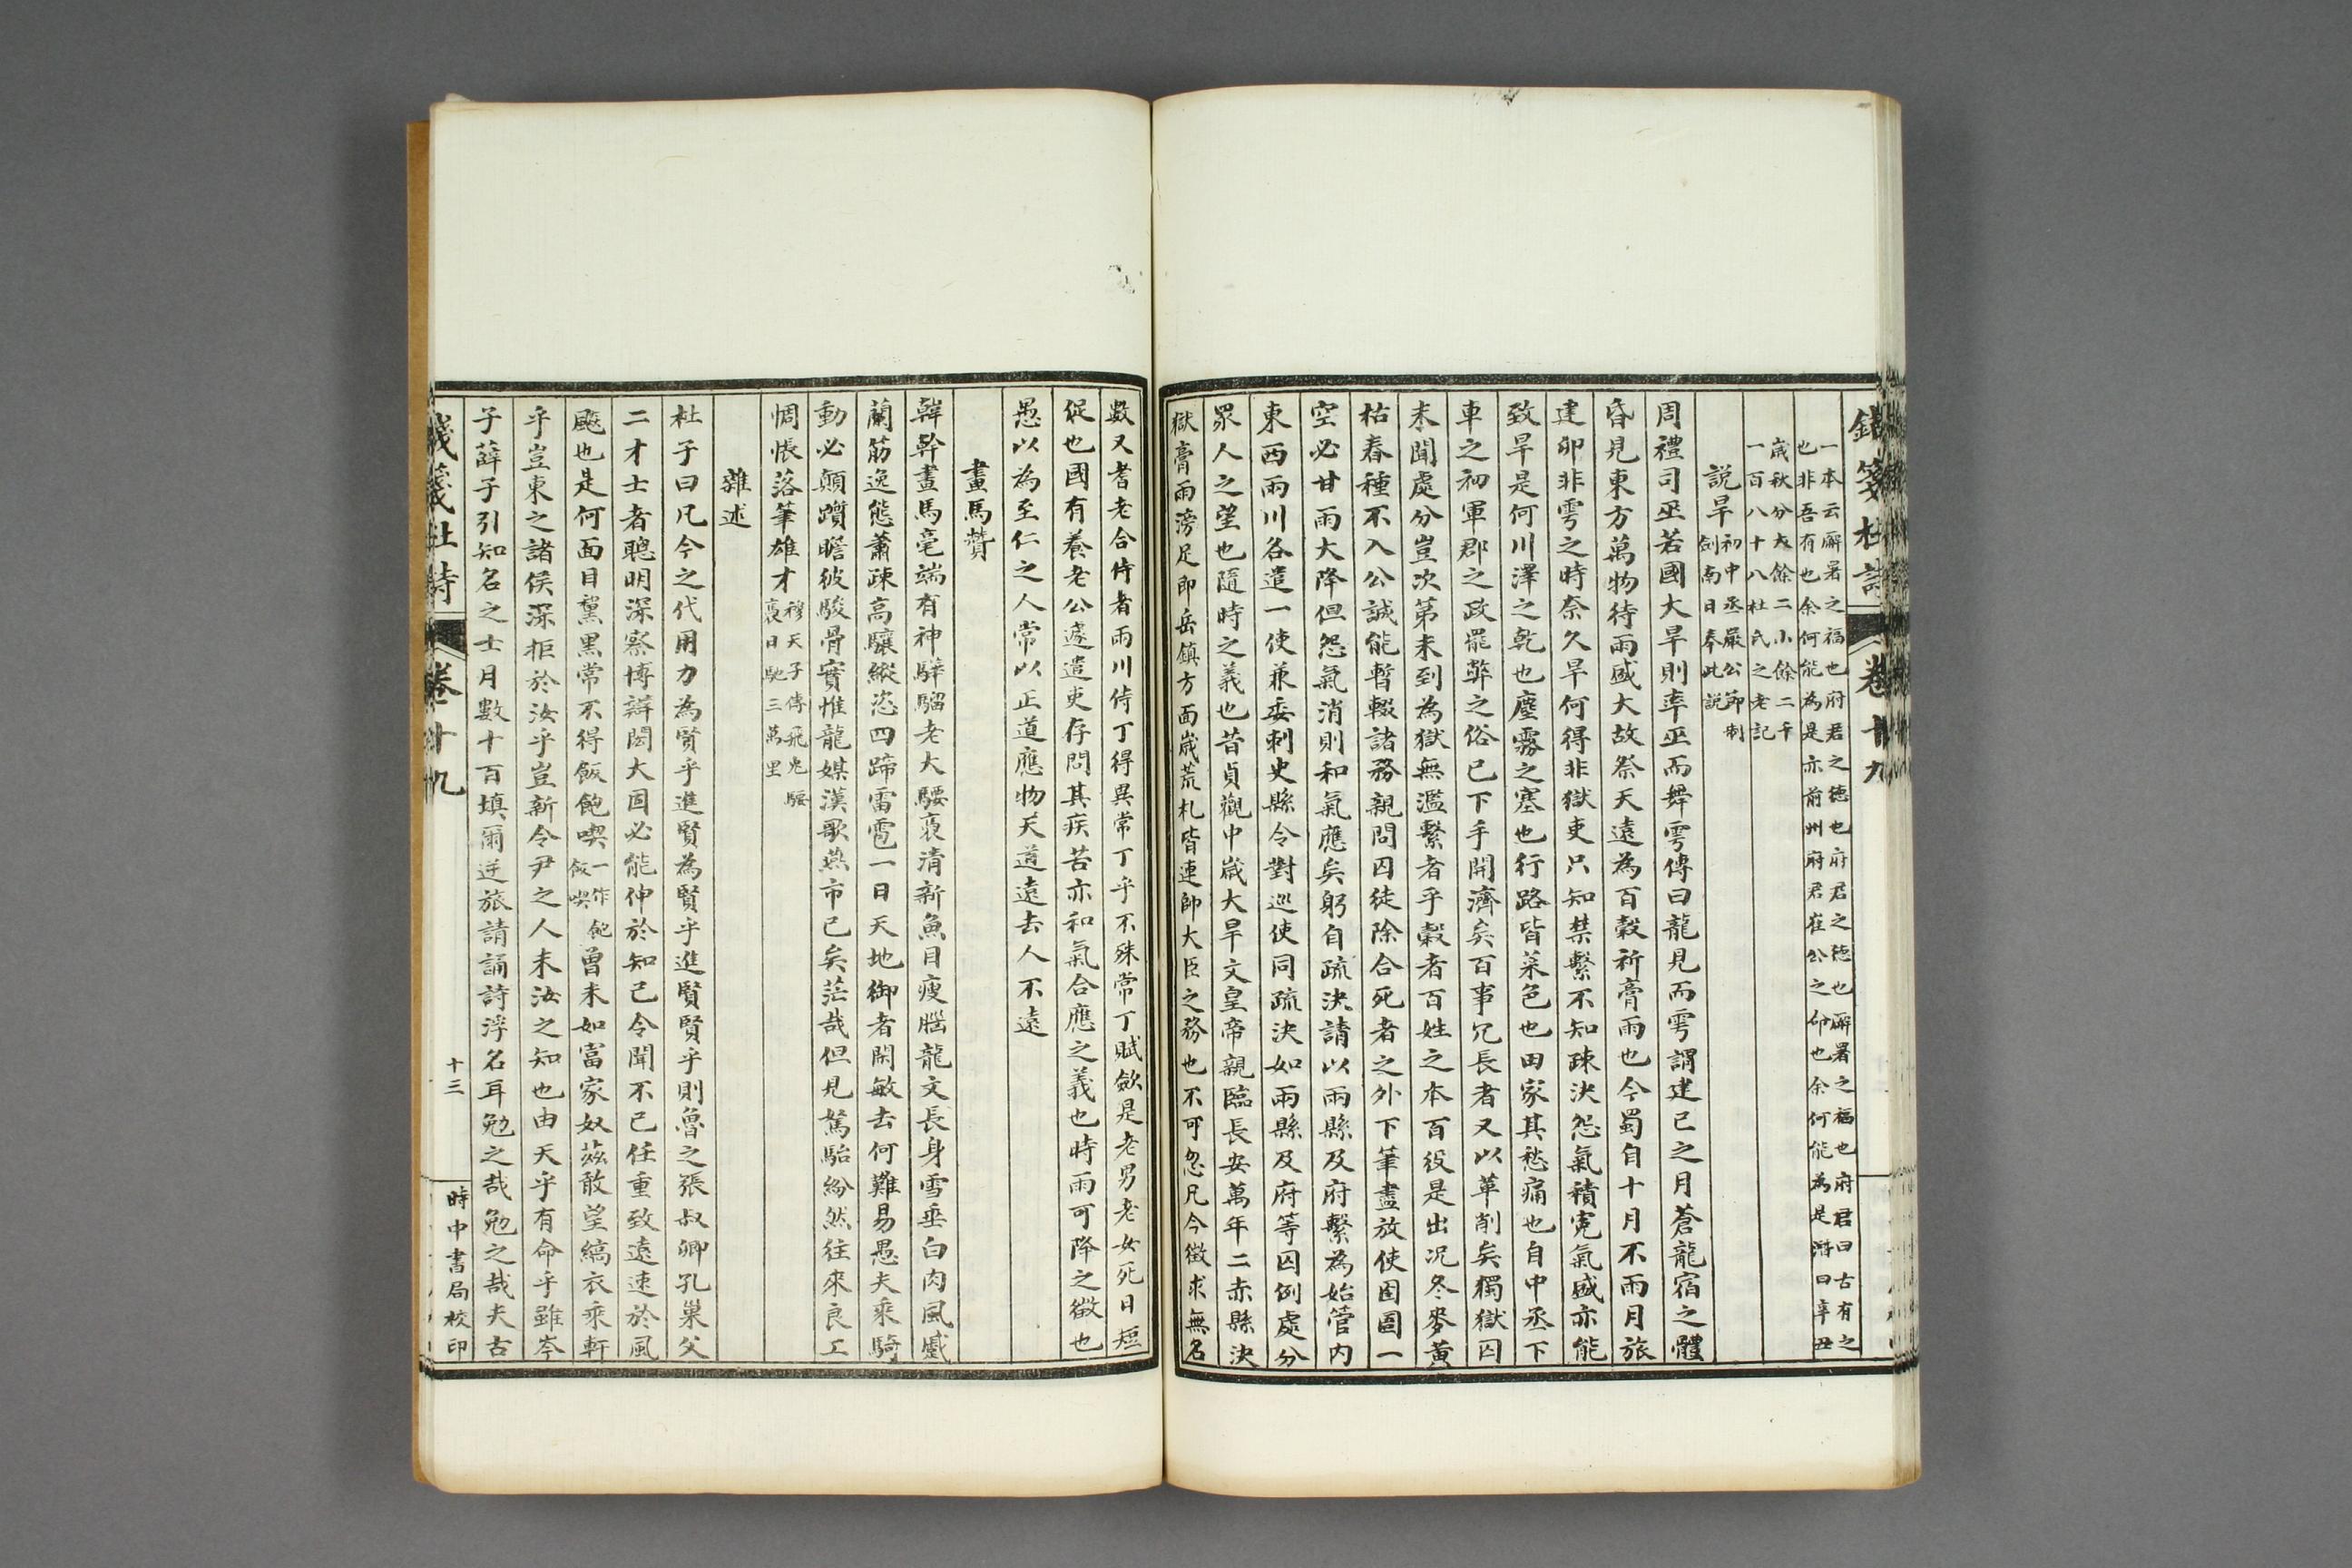 錢箋杜詩 卷十九
一本云廨署之福也府君之德也府君之德也廨署之福也府君曰古有之
也非吾有也余何能為是亦前州府君崔公之命也余何能為是游曰辛丑
歲秋分大餘二小餘二千
一百八十八杜氏之老記
說旱初中丞嚴公節制
劍南日奉此說
周禮司巫若國大旱則率巫而舞雩傳曰龍見而雩謂建巳之月蒼龍宿之體
昏見東方萬物待雨盛大故祭天遠為百穀祈膏雨也今蜀自十月不雨月旅
建卯非雩之時奈久旱何得非獄吏只知禁繫不知疎決怨氣積冤氣盛亦能
致旱是何川澤之乾也塵霧之塞也行路皆菜色也田家其愁痛也自中丞下
車之初軍郡之政罷弊之俗已下手開濟矣百事冗長者又以革削矣獨獄囚
未聞處分豈次第未到為獄無濫繫者乎穀者百姓之本百役是出況冬麥黃
枯春種不入公誠能暫輟諸務親問囚徒除合死者之外下筆盡放使囹圄一
空必甘雨大降但怨氣消則和氣應矣躬自疏決請以兩縣及府繫為始管內
東西兩川各遣一使兼委刺史縣令對巡使同疏決如兩縣及府等囚例處分
眾人之望也隨時之義也昔貞觀中歲大旱文皇帝親臨長安萬年二赤縣決
獄膏雨滂足即岳鎮方面歲荒札皆連帥大臣之務也不可忽凡今徵求無名
數又耆老合侍者兩川侍丁得異常丁乎不殊常丁賦斂是老男老女死日短
促也國有養老公遽遣吏存問其疾苦亦和氣合應之義也時雨可降之徵也
愚以為至仁之人常以正道應物天道遠去人不遠
畫馬讚
韓幹畫馬毫端有神驊騮老大騕褭清新魚目瘦腦龍文長身雪垂白肉風蹙
蘭筋逸態蕭疎高驤縱恣四蹄雷雹一日天地御者閑敏去何難易愚夫乘騎
動必顛躓瞻彼駿骨實惟龍媒漢歌燕市已矣茫哉但見駑駘紛然往來良工
惆悵落筆雄才穆天子傳飛兔騕
褭日馳三萬里
雜述
杜子曰凡今之代用力為賢乎進賢為賢乎進賢賢乎則魯之張叔卿孔巢父
二才士者聰明深察博辯閎大固必能伸於知己令聞不已任重致遠速於風
飈也是何面目黧黑常不得飯飽喫一作飽
飯喫曾未如富家奴茲敢望縞衣乘軒
乎豈東之諸侯深拒於汝乎豈新令尹之人未汝之知也由天乎有命乎雖岑
子薛子引知名之士月數十百填爾逆旅請誦詩浮名耳勉之哉勉之哉夫古
錢箋杜詩 卷十九 十三 時中書局校印